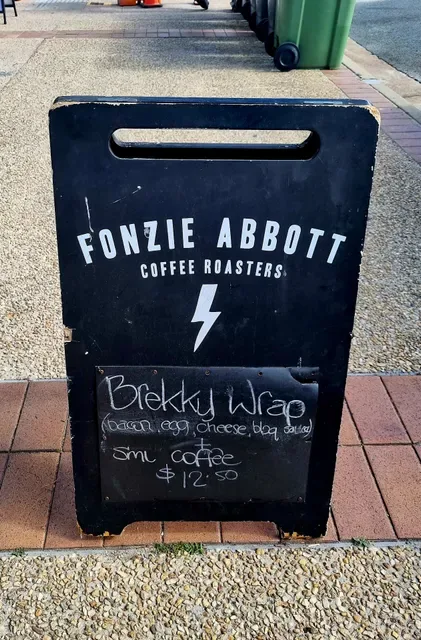 FONZIE ABBOTT
COFFEE ROASTERS
Brekky Wrap
(bacon, egg, cheese, bbq sauce)
+
sml coffee
$12.50